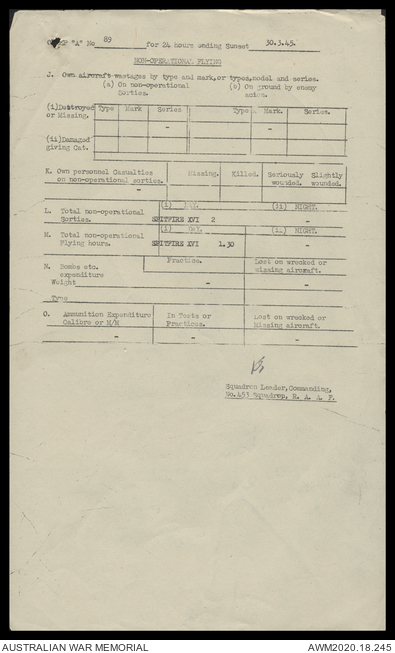 "A" No 89 for 24 hours ending Sunset 30.3.45.
NON-OPERATIONAL FLYING
J. Own aircraft wastages by type and mark, or types, model and series.
(a) On non-operational Sorties.
(b) On ground by enemy action.
(i) Destroyed or Missing.
Type Mark Series Type Mark. Series.
-
-
(ii) Damaged giving Cat.
K. Own personnel Casualties on non-operational sorties.
Missing. Killed. Seriously wounded. Slightly wounded.
L. Total non-operational Sorties.
(i) DAY. (ii) NIGHT.
SPITFIRE XVI 2 -
M. Total non-operational Flying hours.
(i) DAY. (ii) NIGHT.
SPITFIRE XVI 1.30 -
N. Bombs etc. expenditure
Practice. Lost on wrecked or missing aircraft.
Weight - -
Type
O. Ammunition Expenditure Calibre or M/M
In Tests or Practices.
Lost on wrecked or Missing aircraft.
- - -
Squadron Leader, Commanding,
No.453 Squadron, R. A. A. F.
AUSTRALIAN WAR MEMORIAL AWM2020.18.245